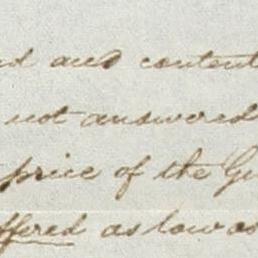 and content
not answered
price of the
offered as low as